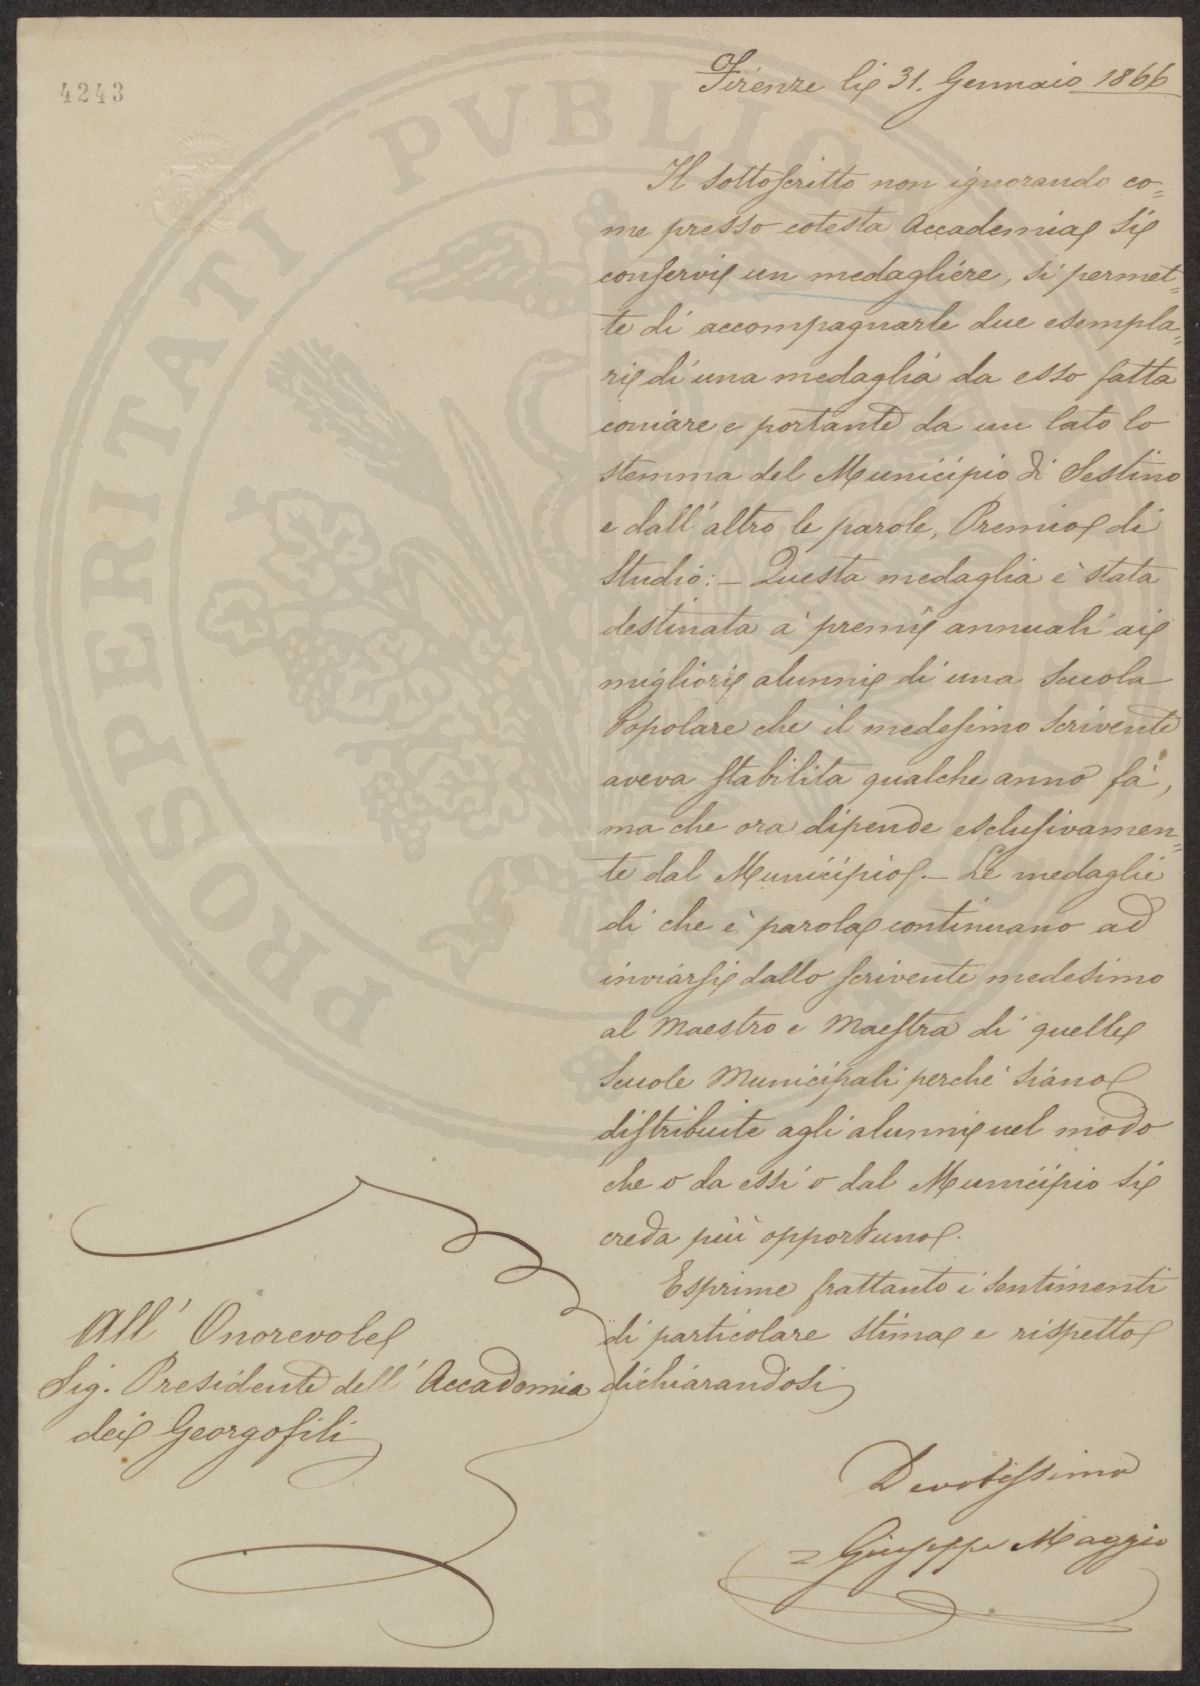 4243
Firenze li 31. Gennaio 1866
Il sottoscritto non ignorando co=
me presso cotesta Accademia si
conservi un medagliere, si permet=
te di accompagnarle due esempla=
ri di una medaglia da esso fatta
coniare e portante da un lato lo
stemma del Municipio di Sestino
e dall'altro le parole, Premio di
Studio: _ Questa medaglia è stata
destinata a' premi annuali ai
migliori alunni di una Scuola
Popolare che il medesimo scrivente
aveva stabilita qualche anno fà,
ma che ora dipende esclusivamen=
te dal Municipio. _ Le medaglie
di che è parola continuano ad
inviarsi dallo scrivente medesimo
al Maestro e Maestra di quelle
Scuole Municipali perchè siano
distribuite agli alunni nel modo
che o da essi o dal Municipio si
creda più opportuno.
Esprime frattanto i sentimenti
di particolare stima e rispetto
dichiarandosi
All' Onorevole
Sig. Presidente dell' Accademia
dei Georgofili
Devotissimo
Giuseppe Maggio
PROSPERITATI PUBLICA